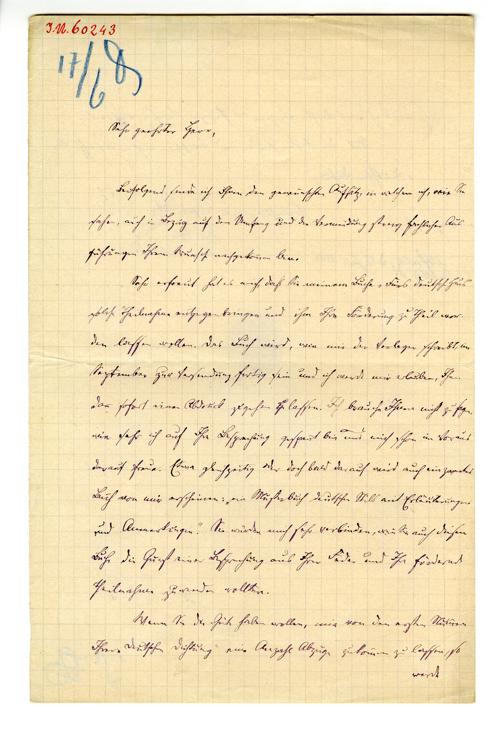 I.N. 60243
17/6
Sehr geehrter Herr,
Beifolgend sende ich Ihnen den gewünschten Aufsatz, in welchem ich, wie Sie
sehen, auch in Bezug auf den Umfang und die Vermeidung streng fachlicher Aus
führungen Ihrem Wunsch nachgekommen bin.
Sehr erfreut hat es mich daß Sie meinem Buche „Fürs deutsche Haus
solche Theilnahme entgegenbringen und ihm Ihre Förderung zu Theil wer-
den lassen wollen. Das Buch wird, wie mir der Verleger schreibt, im
September zur Versendung fertig sein und ich werde mir erlauben, Ihnen
dann sofort einen Abdruck zugehen zu lassen. Ich brauche Ihnen nicht zu sagen
wie sehr ich auf Ihre Besprechung gespannt bin und mich schon im Voraus
darauf freue. Etwa gleichzeitig oder doch bald darauf wird auch ein zweites
Buch von mir erscheinen: ein Musterbuch deutschen Stils mit Erläuterungen
und Anmerkungen." Sie würden mich sehr verbinden, wenn Sie auch diesem
Buche die Gunst einer Besprechung aus Ihrer Feder und Ihre fördernde
Theilnahme zuwenden wollten.
Wenn Sie die Güte haben wollen, mir von den ersten Nummern
Ihrer Deutschen Dichtung eine Anzahl Abzüge zukommen zu lassen, so
werde